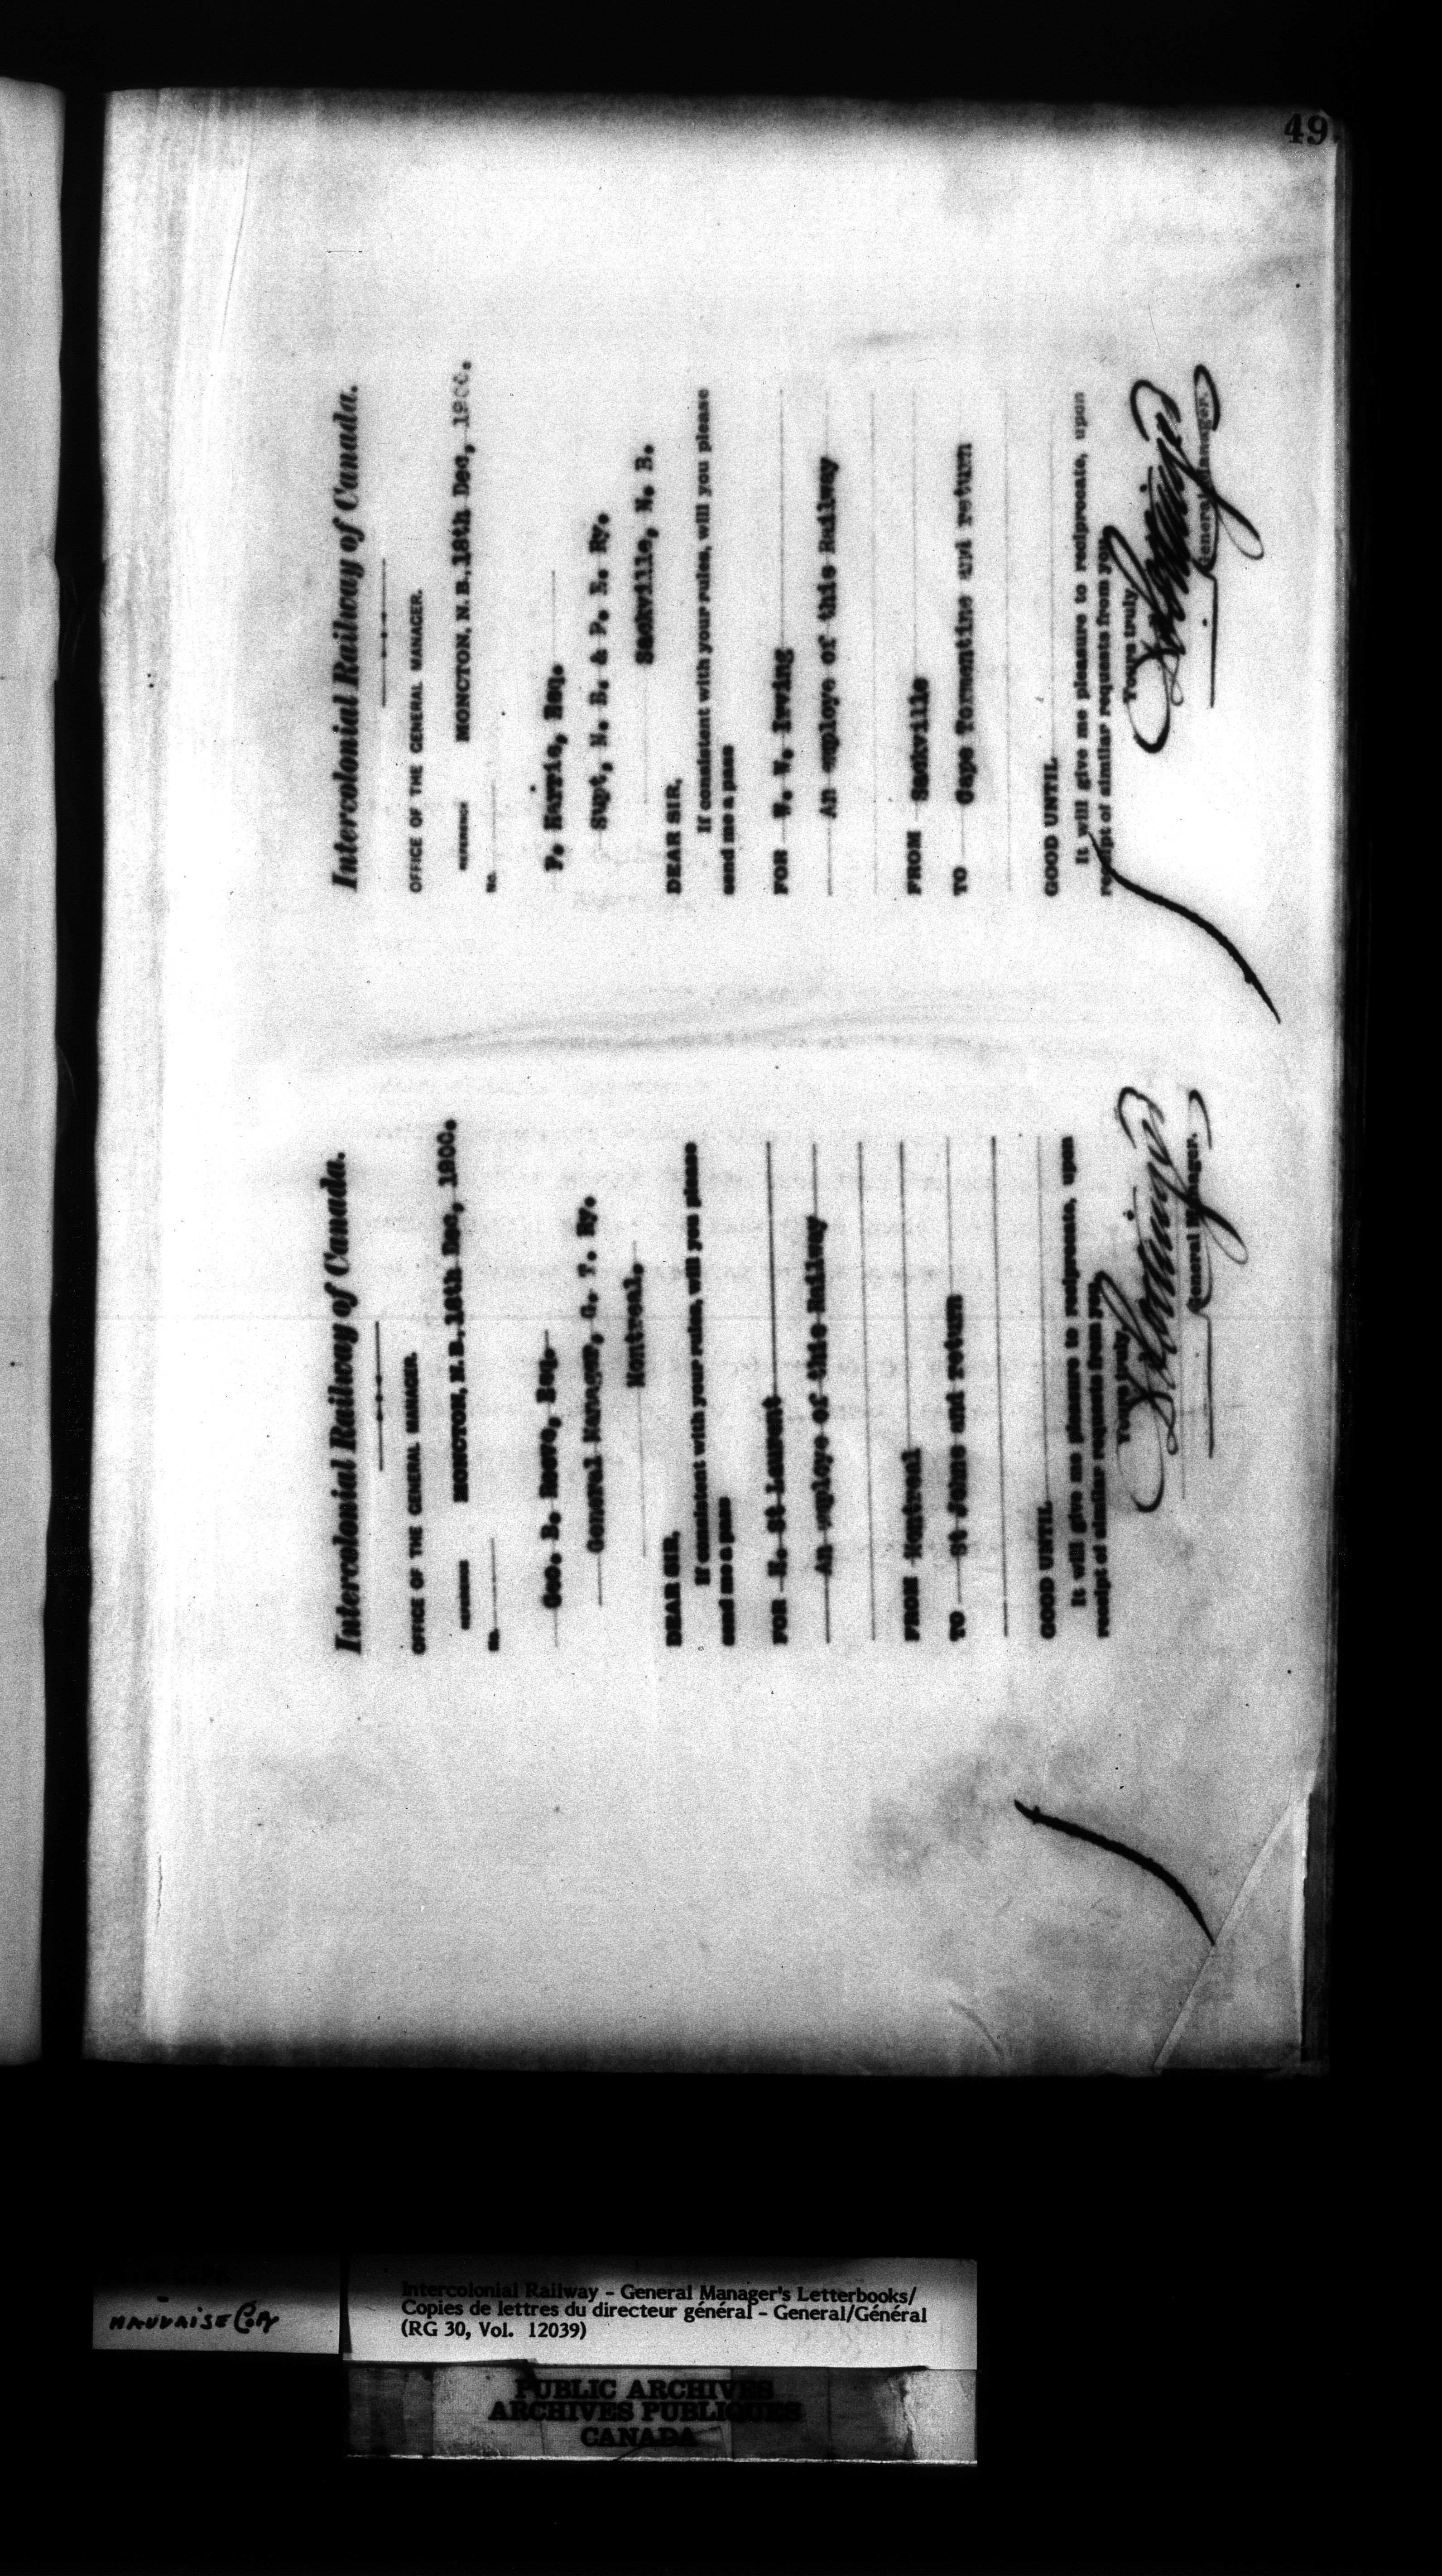 49
Intercolonial Railway of Canada.
OFFICE OF THE GENERAL MANAGER.
MONCTON, N. B., 18th Dec, 1900.
REFERENCE
No.
Geo. B. Reeve, Esq.
General Manager, G. T. Ry.
Montreal.
DEAR SIR,
If consistent with your rules, will you please
send me a pass
FOR E. St Laurent
An employe of this Railway
FROM Montreal
TO St Johns and return
GOOD UNTIL
It will give me pleasure to reciprocate, upon
receipt of similar requests from you.
Yours truly,
General Manager.
Intercolonial Railway of Canada.
OFFICE OF THE GENERAL MANAGER.
MONCTON, N. B., 18th Dec, 1900.
REFERENCE
No.
P. Harris, Esq.
Supt, N. B. & P. E. Ry.
Sackville, N. B.
DEAR SIR,
If consistent with your rules, will you please
send me a pass
FOR W. V. Irving
An employe of this Railway
FROM Sackville
TO Cape Tormentine and return
GOOD UNTIL
It will give me pleasure to reciprocate, upon
receipt of similar requests from you.
Yours truly,
General Manager.
MAUVAISE COPY
Intercolonial Railway - General Manager's Letterbooks/
Copies de lettres du directeur général - General/Général
(RG 30, Vol. 12039)
PUBLIC ARCHIVES
ARCHIVES PUBLIQUES
CANADA